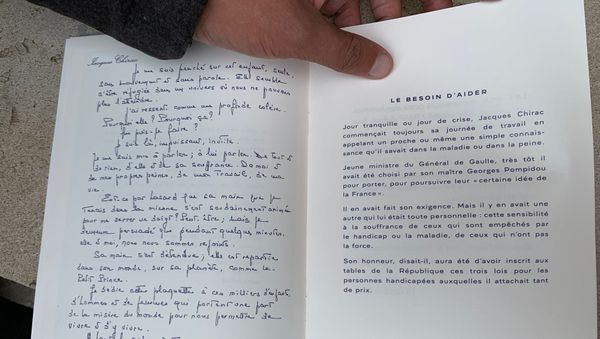 Jacques Chirac
Je me suis penché sur cet enfant, seule,
sans mouvement et sans parole. Elle semble
s'être réfugiée dans un univers où nous ne pouvons
plus l'atteindre.
J'ai ressenti comme une profonde colère.
Pourquoi elle ? Pourquoi ça ?
Que puis-je faire ?
Je suis là, impuissant, inutile.
Je me suis mis à parler ; à lui parler. De tout et
de rien, d'elle et de sa souffrance. De moi et
de mes propres peines, de mon travail, de ma
vie.
Est-ce par hasard que sa main que je
tenais dans la mienne s'est soudainement animée
pour me serrer un doigt ? Peut-être, mais je
demeure persuadé que pendant quelques minutes,
elle et moi, nous nous sommes rejoints.
Sa main s'est détendue ; elle est repartie
dans son monde, sur sa planète, comme le
Petit Prince.
Je dédie cette plaquette à ces milliers d'enfants,
d'hommes et de femmes qui portent une part
de la misère du monde pour nous permettre de
vivre et d'y vivre.
LE BESOIN D'AIDER
Jour tranquille ou jour de crise, Jacques Chirac
commençait toujours sa journée de travail en
appelant un proche ou même une simple connais-
sance qu'il savait dans la maladie ou dans la peine.
Jeune ministre du Général de Gaulle, très tôt il
avait été choisi par son maître Georges Pompidou
pour porter, pour poursuivre leur « certaine idée de
la France ».
Il en avait fait son exigence. Mais il y en avait une
autre qui lui était toute personnelle : cette sensibilité
à la souffrance de ceux qui sont empêchés par
le handicap ou la maladie, de ceux qui n'ont pas
la force.
Son honneur, disait-il, aura été d'avoir inscrit aux
tables de la République ces trois lois pour les
personnes handicapées auxquelles il attachait tant
de prix.